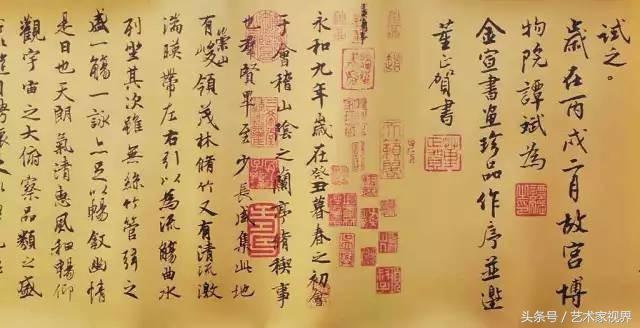 试之。
歲在丙戌二月故宫博
物院譚斌為
金宣書畫珍品作序並邀
董正賀書
永和九年歲在癸丑暮春之初會
于會稽山陰之蘭亭脩稧事
也羣賢畢至少長咸集此地
有崇山峻領茂林脩竹又有清流激
湍暎帶左右引以為流觴曲水
列坐其次雖無絲竹管弦之
盛一觴一詠上足以暢叙幽情
是日也天朗氣清惠風和暢仰
觀宇宙之大俯察品類之盛
头条号 / 艺术家视界